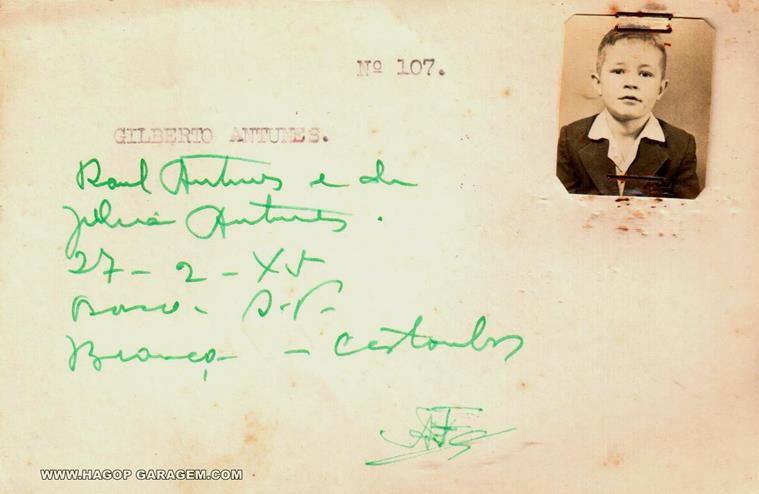 Nº 107.
GILBERTO ANTUNES.
Raul Antunes e de
Julia Antunes.
27-2-45
S.P.
Branca - castanhos
WWW.HAGOP GARAGEM.COM